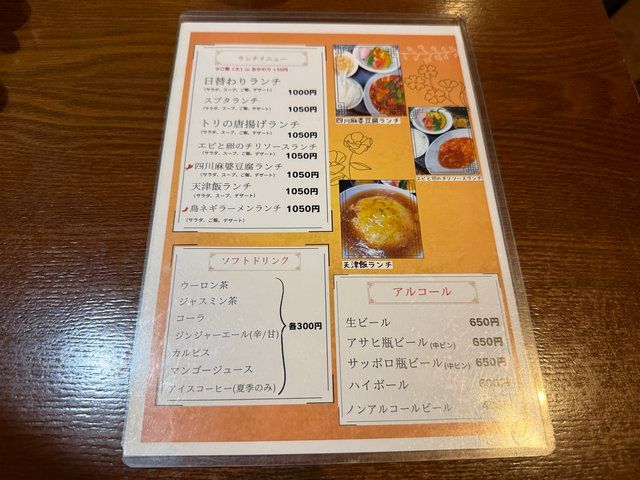 ランチメニュー
日替わりランチ
(サラダ、スープ、ご飯、デザート) 1000円
スブタランチ
(サラダ、スープ、ご飯、デザート) 1050円
トリの唐揚げランチ
(サラダ、スープ、ご飯、デザート) 1050円
エビと卵のチリソースランチ
(サラダ、スープ、ご飯、デザート) 1050円
四川麻婆豆腐ランチ
(サラダ、スープ、ご飯、デザート) 1050円
天津飯ランチ
(サラダ、スープ、デザート) 1050円
鳥ネギラーメンランチ 1050円
(サラダ、ご飯、デザート)
四川麻婆豆腐ランチ
エビと卵のチリソースランチ
天津飯ランチ
ソフトドリンク
ウーロン茶
ジャスミン茶
コーラ
ジンジャーエール(辛/甘)
カルピス
マンゴージュース
アイスコーヒー(夏季のみ)
各300円
アルコール
生ビール 650円
アサヒ瓶ビール(中ビン) 650円
サッポロ瓶ビール(中ビン) 650円
ハイボール
ノンアルコールビール